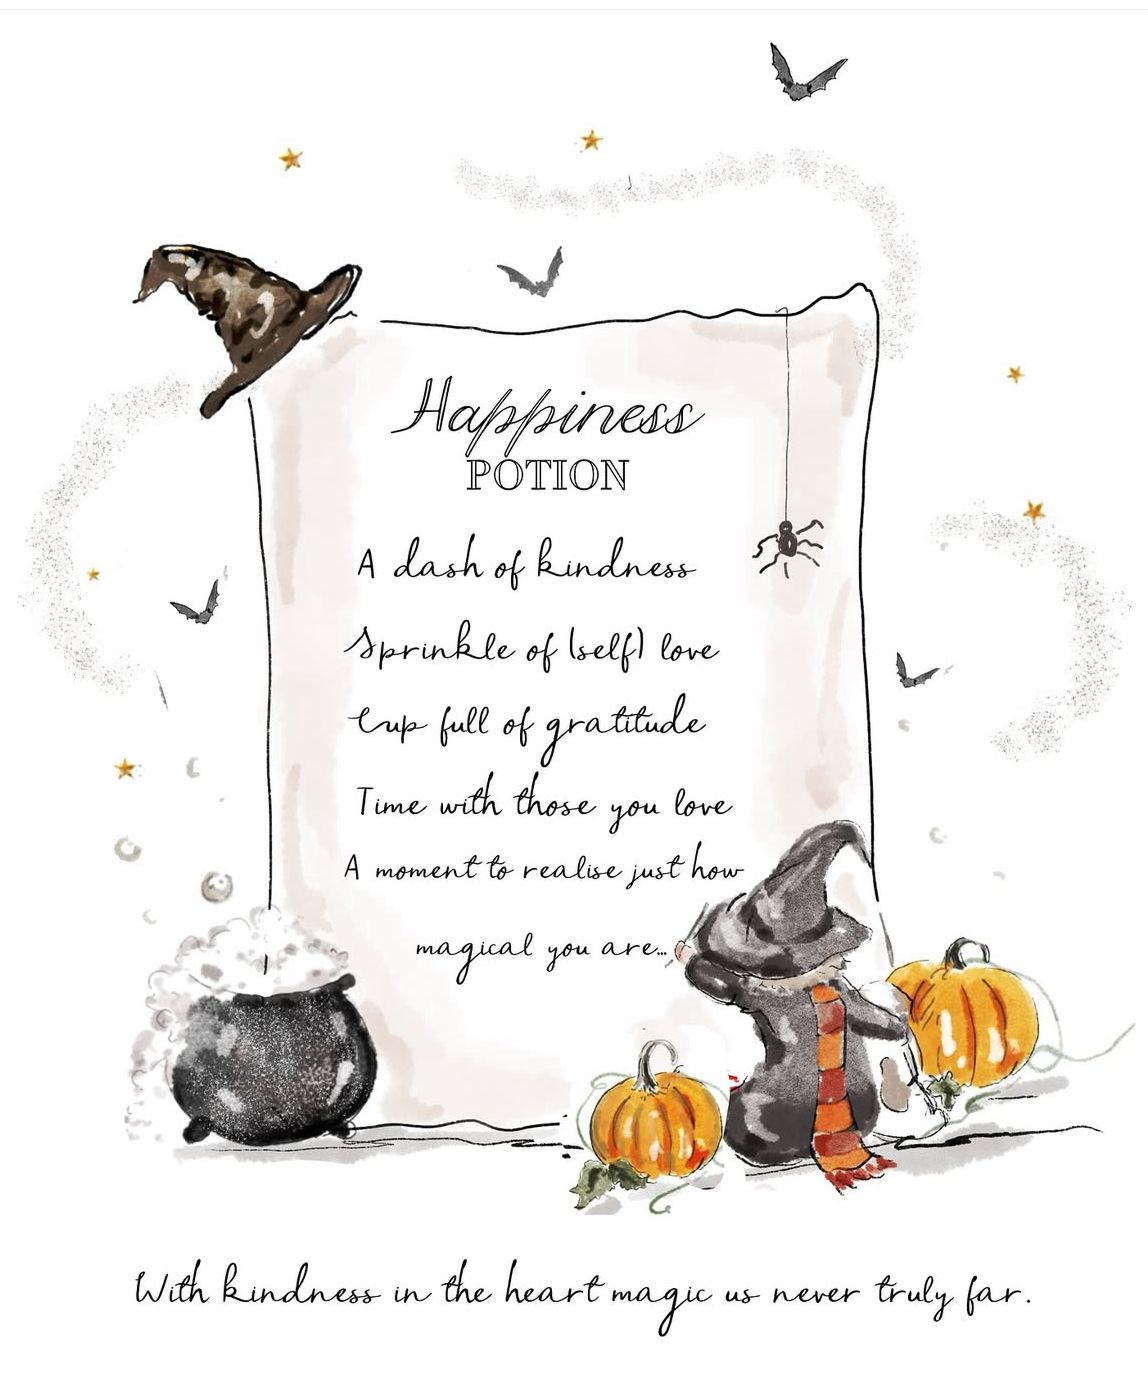 Happiness
POTION
A dash of kindness
Sprinkle of (self) love
Cup full of gratitude
Time with those you love
A moment to realise just how
magical you are...
With kindness in the heart magic us never truly far.